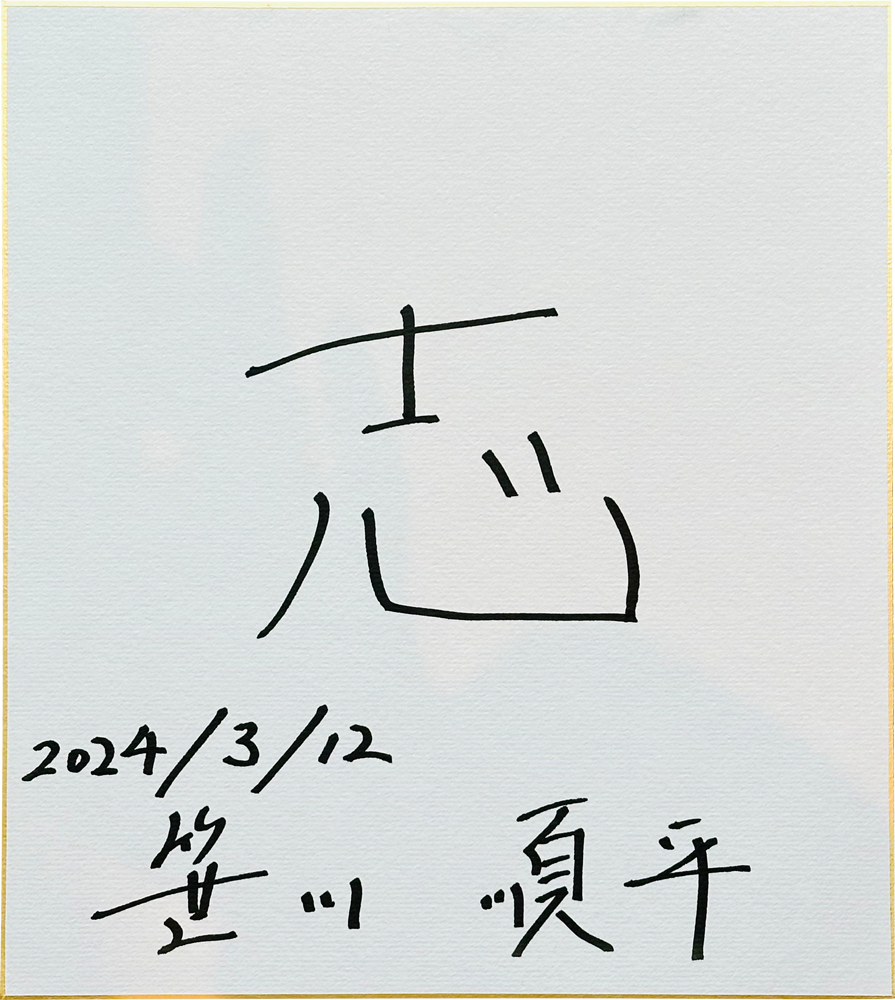 志
2024/3/12
笹川 順平